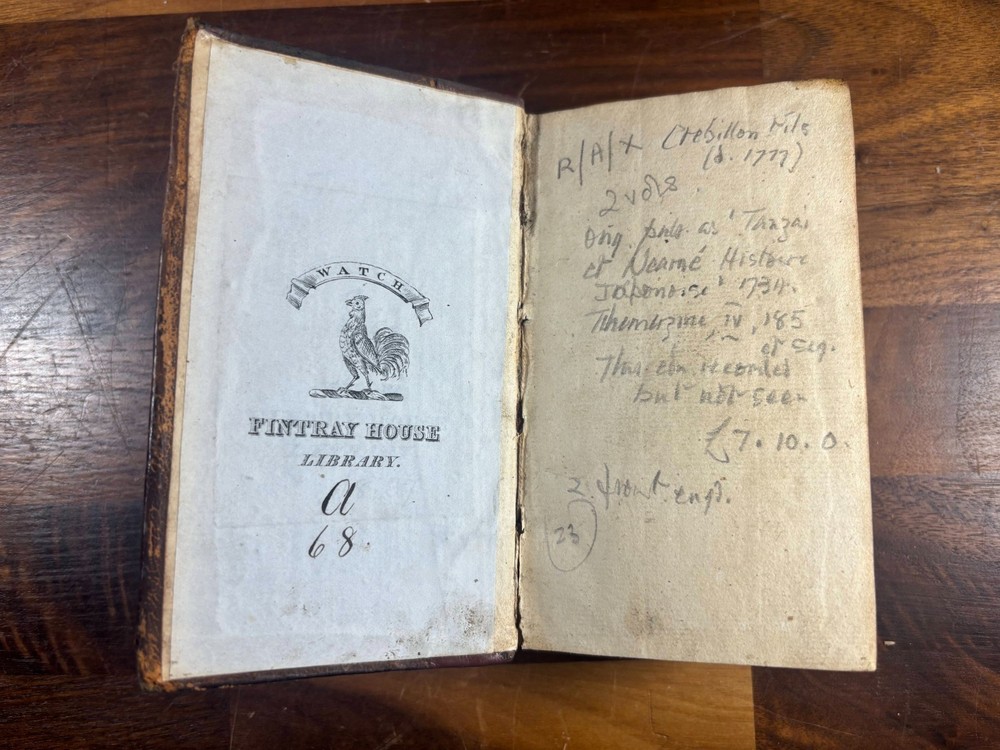 WATCH
FINTRAY HOUSE
LIBRARY.
a
68.
R/A/X Crébillon Fils
(d. 1777)
2 vols.
Orig. pub. as 'Tanzai
et Néarné Histoire
Japonaise' 1734.
Thémerzine, IV, 185
et seq.
This edn recorded
but not seen
£7.10.0.
2. front engr.
23